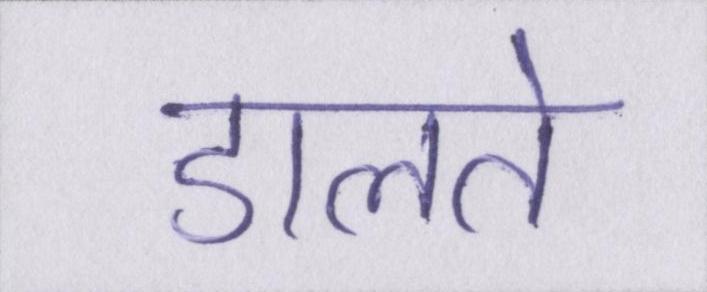 डालते